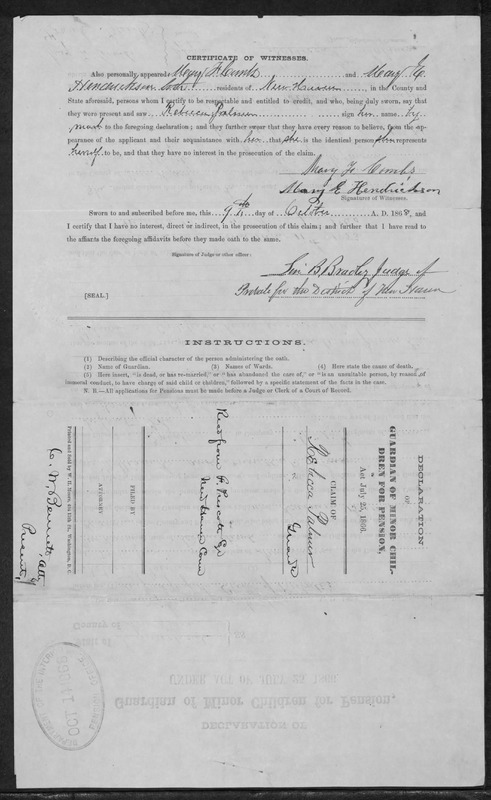 CERTIFICATE OF WITNESSES.
Also personally appeared Mary F. Combs and Mary E.
Hendrickson both residents of New Haven, in the County and
State aforesaid, persons whom I certify to be respectable and entitled to credit, and who, being duly sworn, say that
they were present and saw Rebecca Palmer sign her name by
mark to the foregoing declaration; and they further swear that they have every reason to believe, from the ap-
pearance of the applicant and their acquaintance with her that she is the identical person she represents
herself to be, and that they have no interest in the prosecution of the claim.
Mary F. Combs
Mary E Hendrickson
Signatures of Witnesses.
Sworn to and subscribed before me, this 9th day of October A. D. 1868, and
I certify that I have no interest, direct or indirect, in the prosecution of this claim; and further that I have read to
the affiants the foregoing affidavits before they made oath to the same.
Signature of Judge or other officer:
B Bradley Judge of
[SEAL.]
Probate for the District of New Haven
INSTRUCTIONS.
(1) Describing the official character of the person administering the oath.
(2) Name of Guardian. (3) Names of Wards. (4) Here state the cause of death.
(5) Here insert, "is dead, or has re-married," or "has abandoned the care of," or "is an unsuitable person, by reason of
immoral conduct, to have charge of said child or children," followed by a specific statement of the facts in the case.
N. B.—All applications for Pensions must be made before a Judge or Clerk of a Court of Record.
DECLARATION
OF
GUARDIAN OF MINOR CHIL-
DREN FOR PENSION,
Act July 25, 1866.
CLAIM OF
Rebecca Palmer
Guard
New Haven Conn
FILED BY
ATTORNEY
Printed and sold by W. H. Moore, Washington, D. C.
C. W. Bennett, Atty
Present,
DECLARATION OF
Guardian of Minor Children for Pension,
UNDER ACT OF JULY 25, 1866
State of
County of
OCT 14 1868